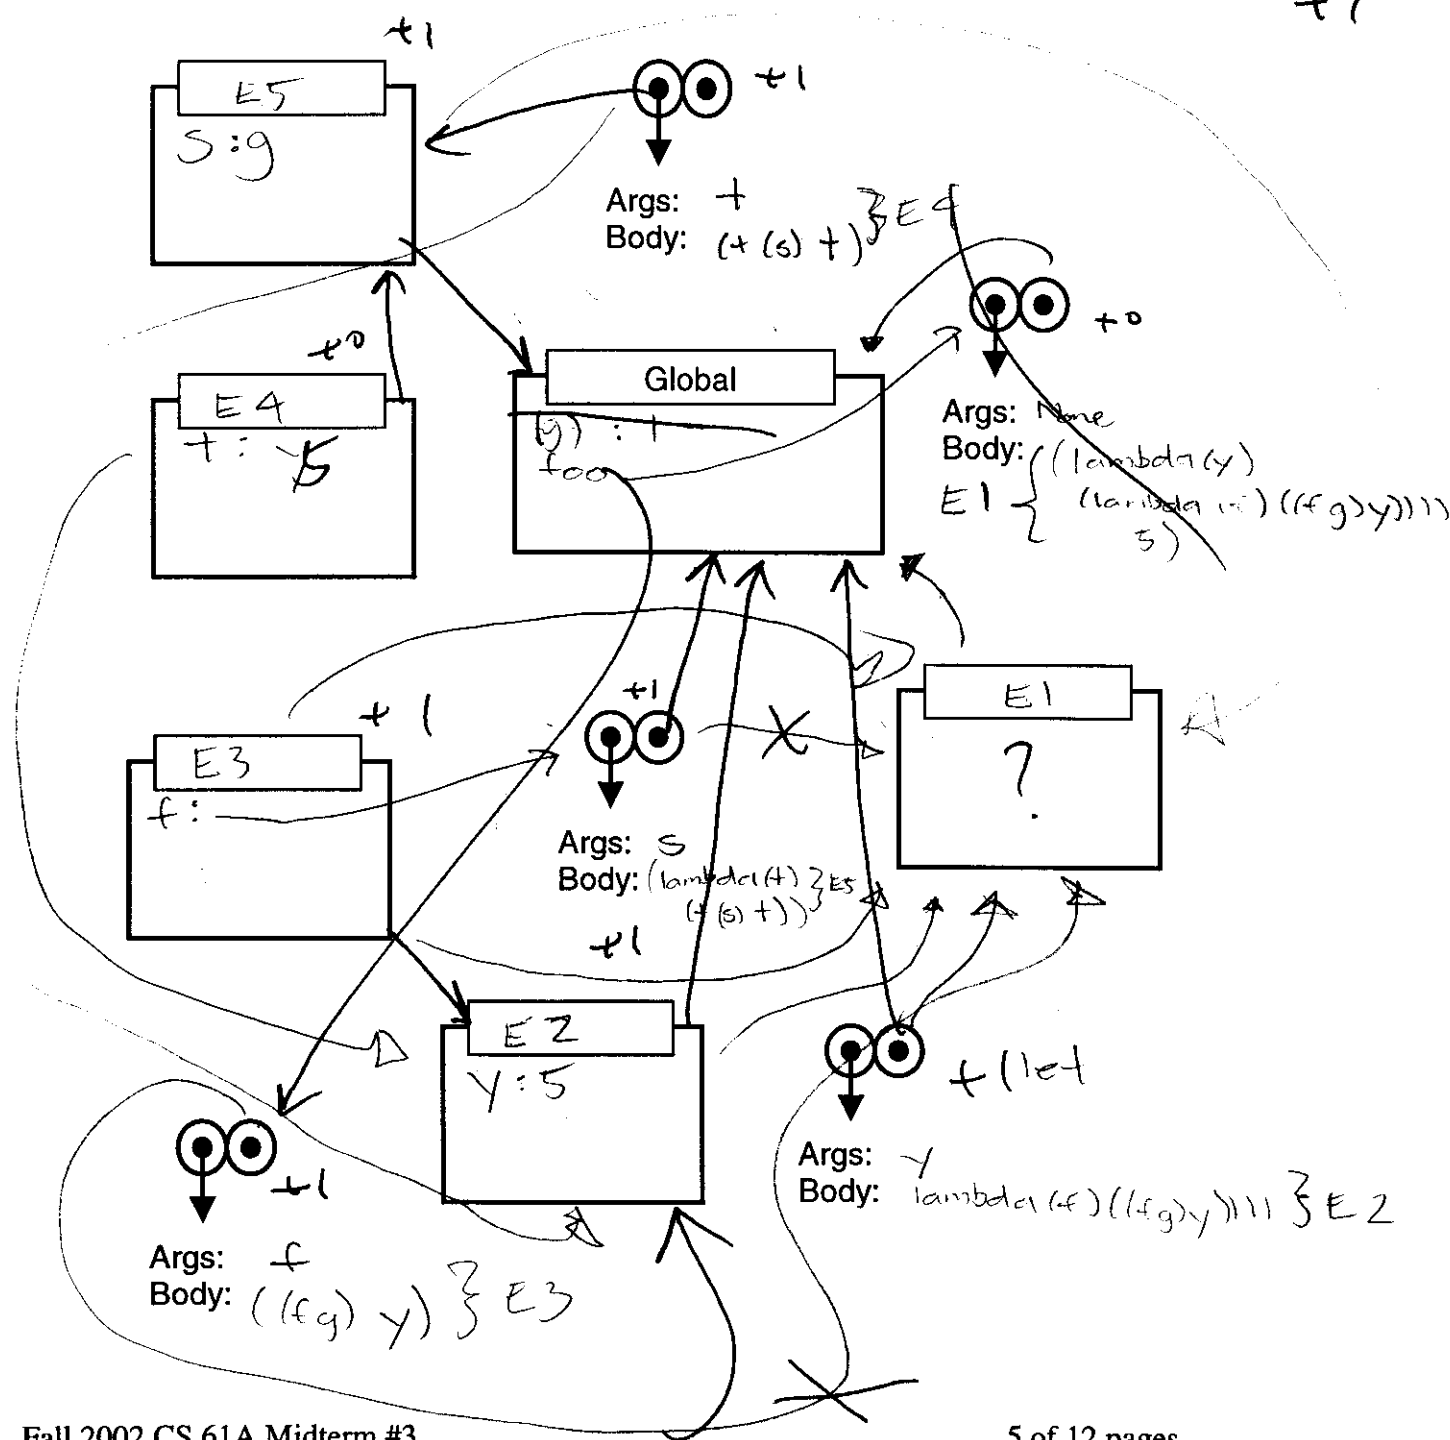 +1
+1
E5
+1
S:g
Args: t
Body: (+ (s) t) } E4
+0
+0
E4
t: 5
Global
(g) : 1
foo
Args: None
Body: ((lambda (y)
E1 { (lambda (f) ((f g) y))))
5)
+1
+1
E3
f:
E1
?
Args: S
Body: (lambda (t) } E5
(+ (s) t))
+1
E2
y:5
+1 let
+1
Args: y
Body: lambda (f) ((f g) y)))) } E2
Args: f
Body: ((f g) y) } E3
Fall 2002 CS 61A Midterm #3
5 of 12 pages